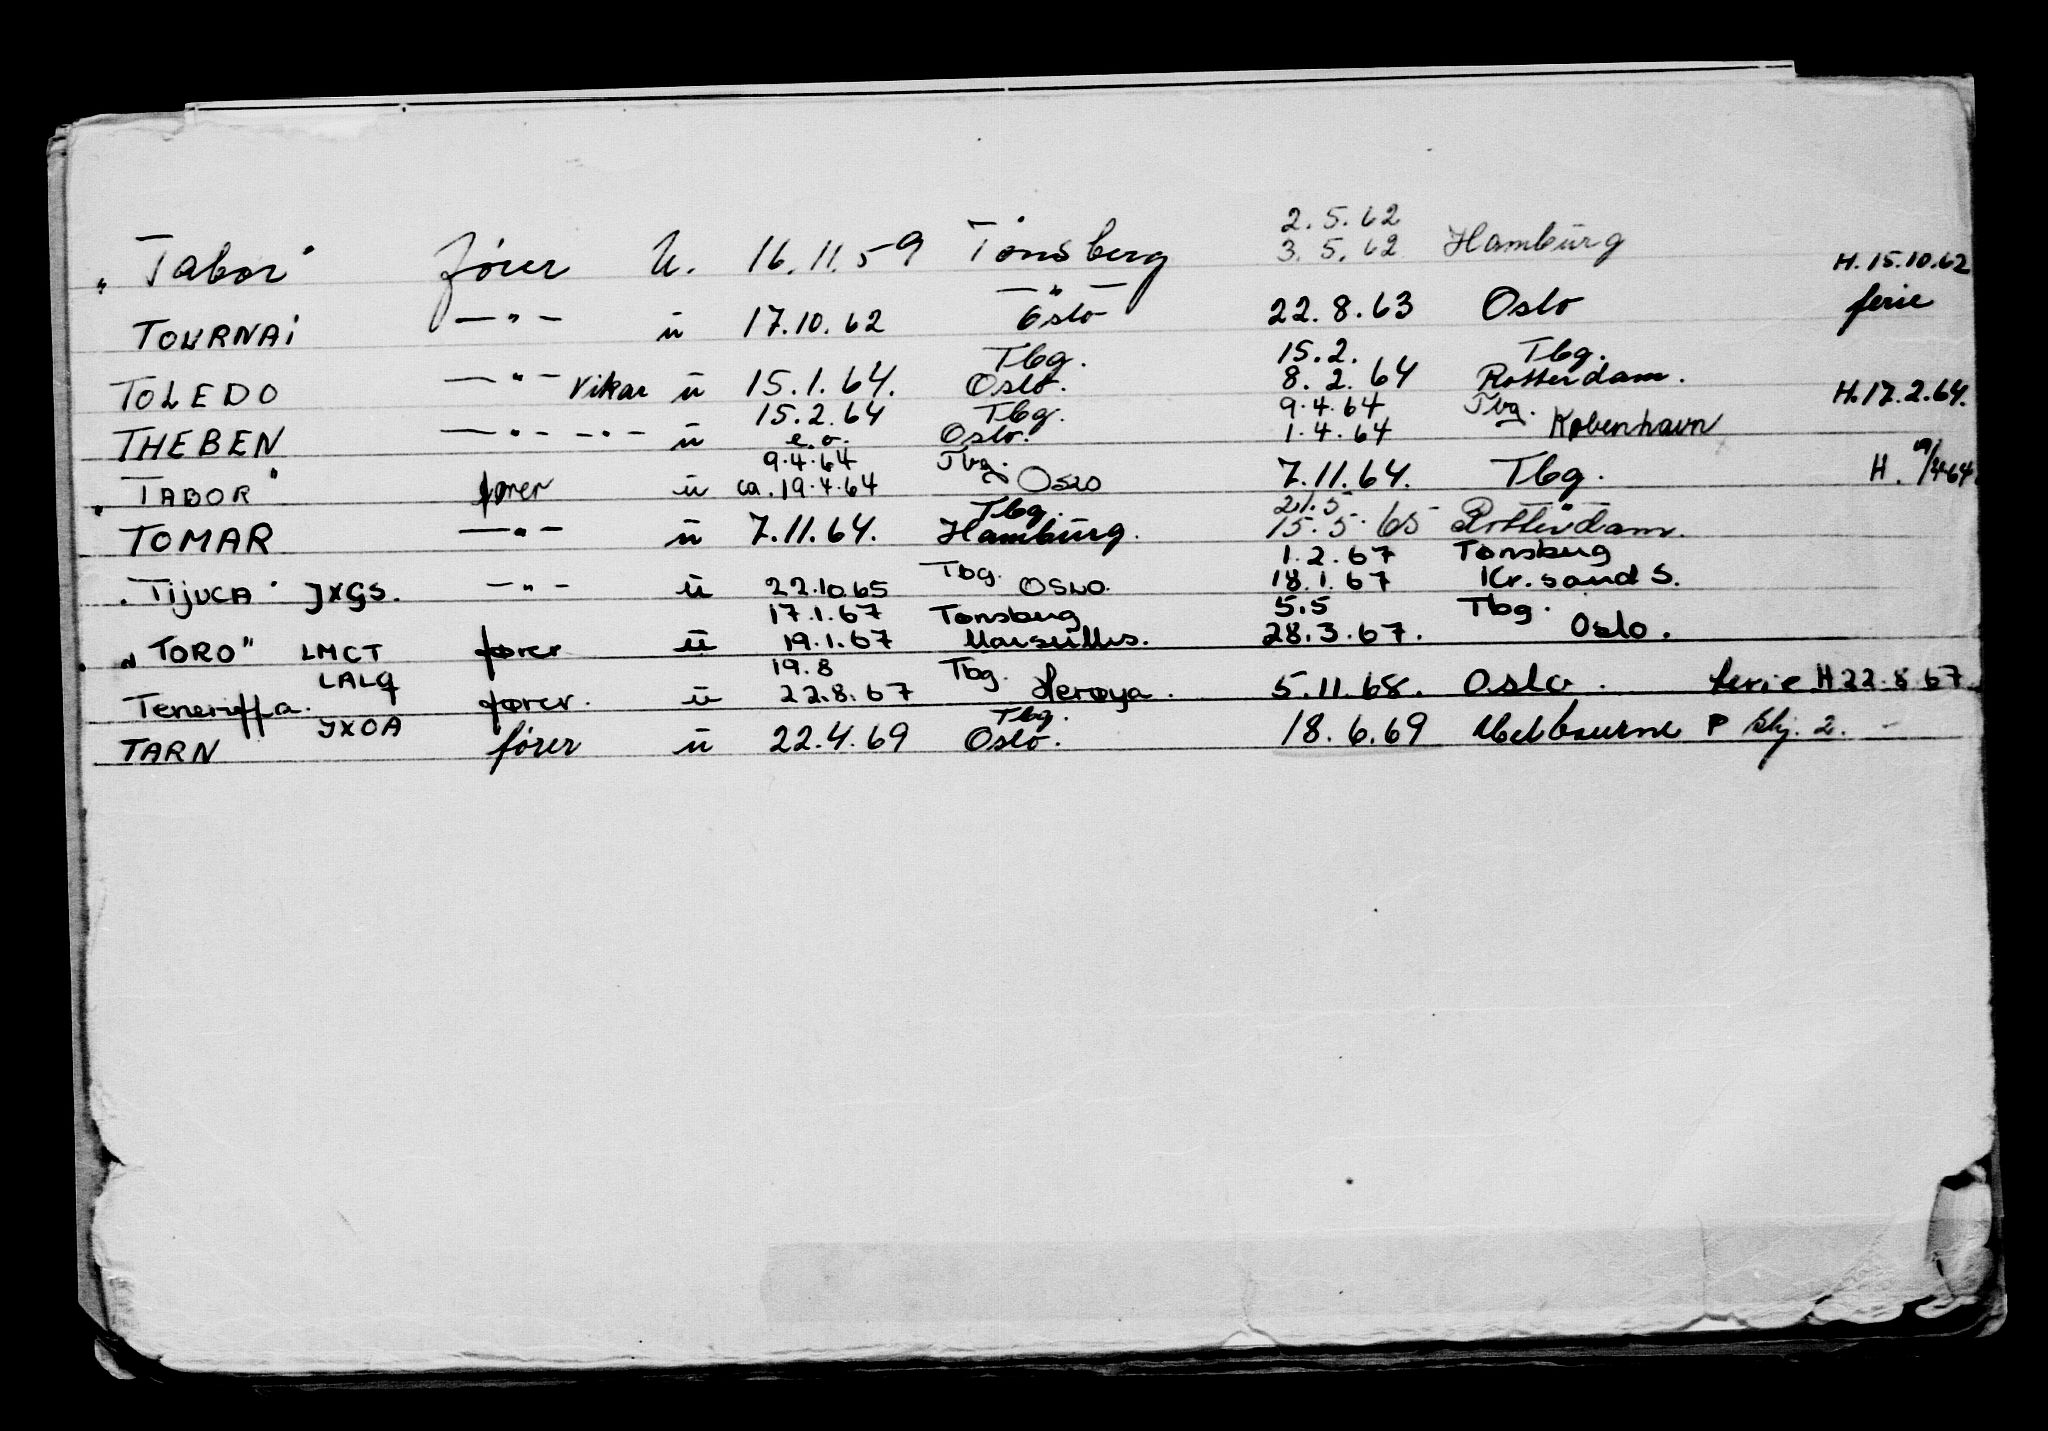 2.5.62
"Tabor" fører U. 16.11.59 Tønsberg 3.5.62 Hamburg H. 15.10.62
— " —
TOURNAi — " — u 17.10.62 Oslo 22.8.63 Oslo ferie
Tbg. 15.2. Tbg.
TOLEDO — " — Vikar u 15.1.64. Oslo. 8.2.64 Rotterdam. H.17.2.64.
15.2.64 Tbg. 9.4.64 Tbg.
THEBEN — " — — " — u e.o. Oslo. 1.4.64 København
9.4.64 Tbg.
"TABOR" fører u ca. 19.4.64 Oslo 7.11.64. Tbg. H.
Tbg. 21.5
TOMAR — " — u 7.11.64. Hamburg. 15.5.65 Rotterdam.
Tbg. 1.2.67 Tønsberg
"TijUCA" JXGS. — " — u 22.10.65 OSLO. 18.1.67 Kr.sand S.
17.1.67 Tønsberg 5.5 Tbg.
"TORO" LMCT fører u 19.1.67 Marseilles. 28.3.67. Oslo.
LALQ 19.8 Tbg.
Teneriffa. fører. u 22.8.67 Herøya. 5.11.68. Oslo. ferie H 22.8.67
JXOA Tbg.
TARN fører u 22.4.69 Oslo. 18.6.69 Melbourne P Skj. 2. -